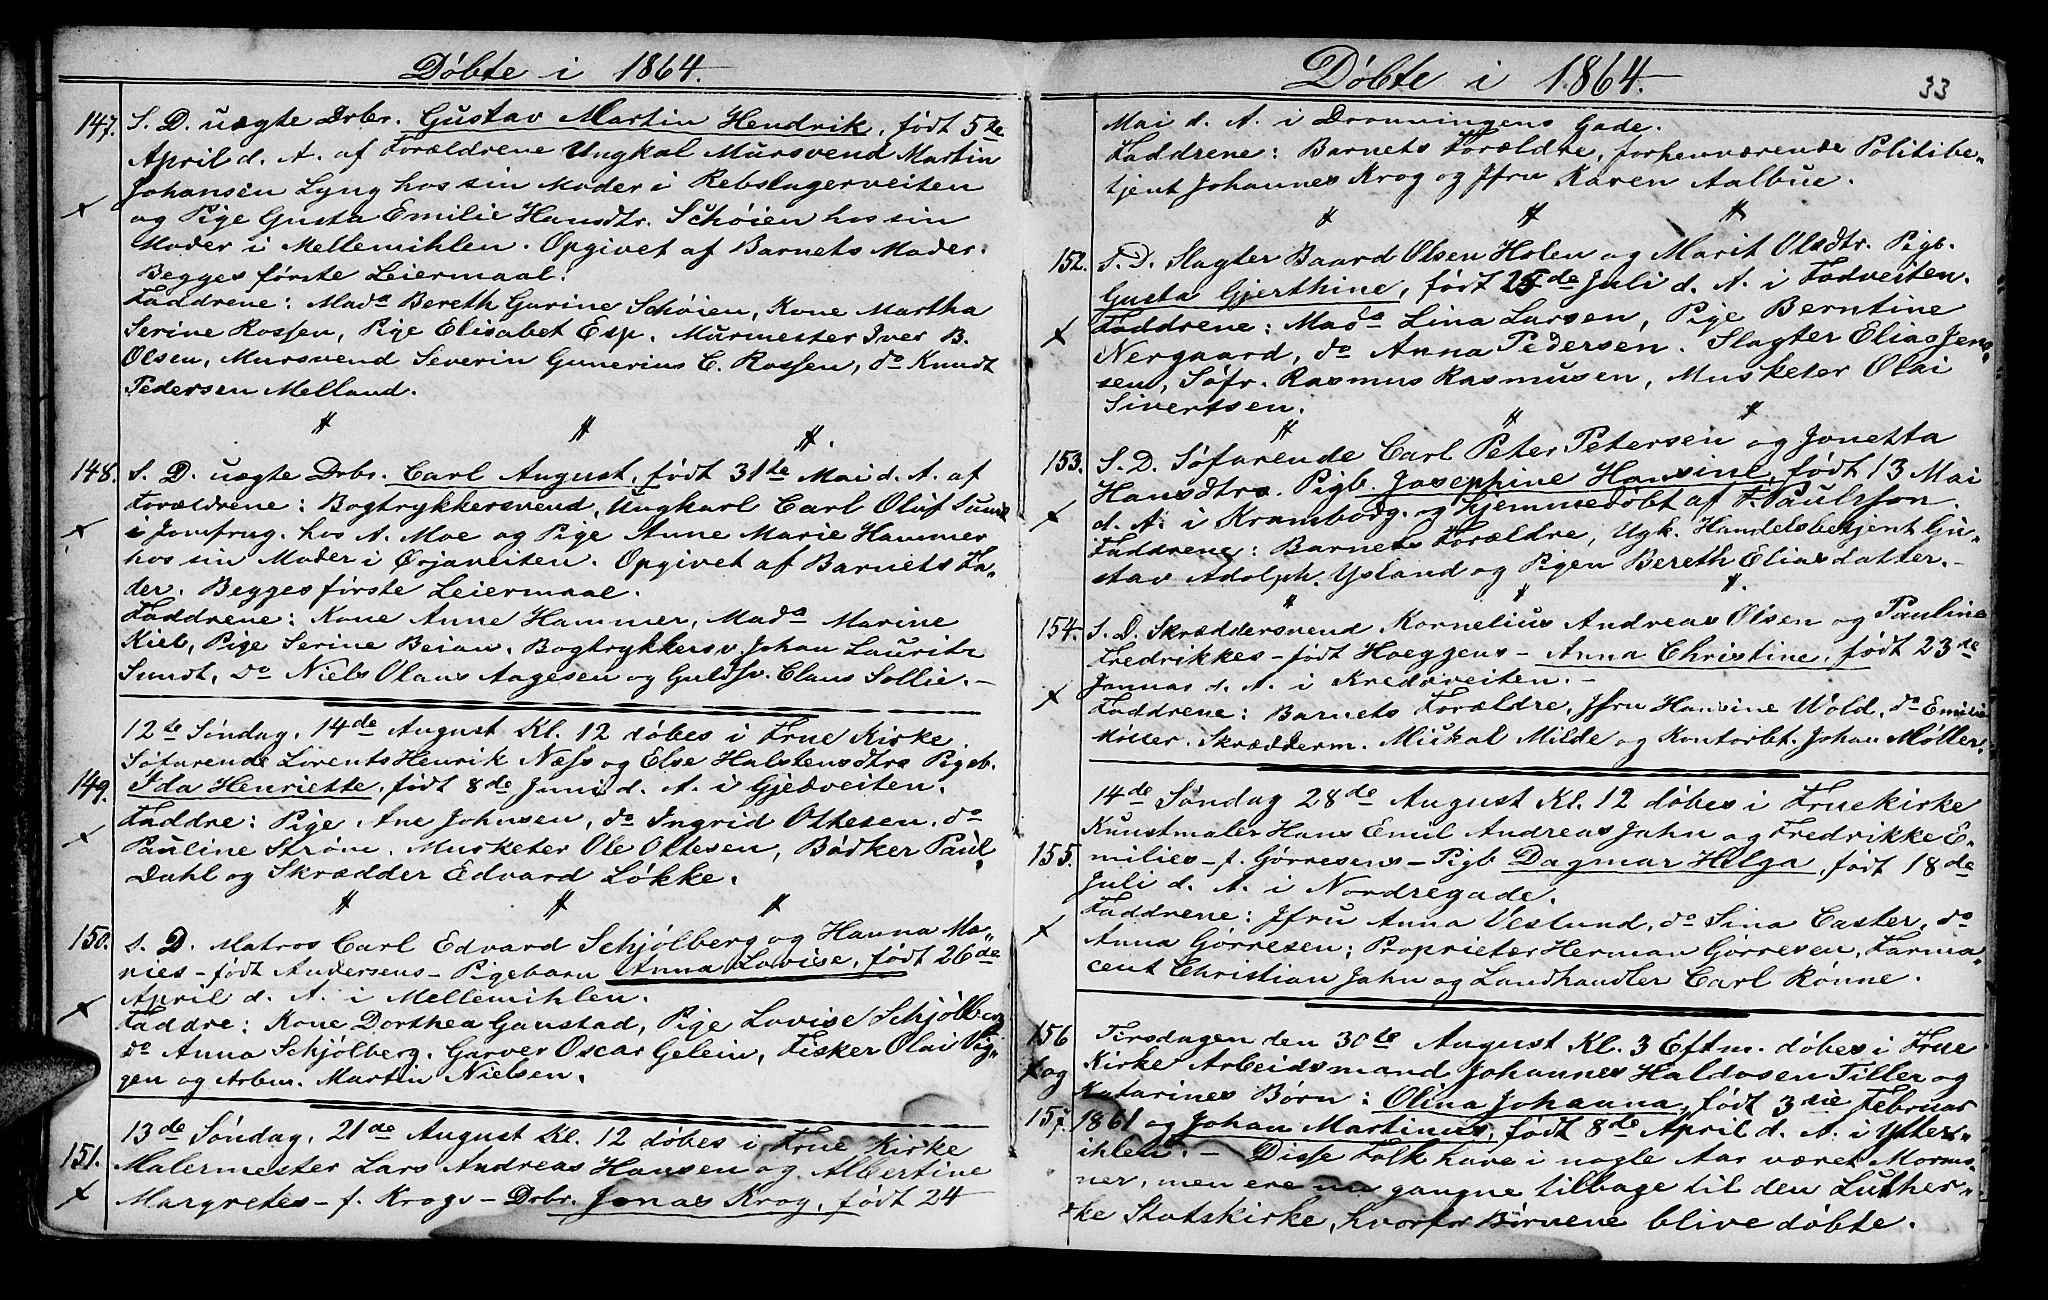 Døbte i 1864.
147. S. D. uægte Drbr. Gustav Martin Hendrik, født 5te
April d. A. af Forældrene Ungkal Mursvend Martin
Johansen Lyng hos sin Moder i Rebslagerveiten
og Pige Gusta Emilie Hansdtr. Schøien hos sin
Moder i Mellemihlen. Opgivet af Barnets Moder.
Begges første Leiermaal.
Faddrene: Mada Bereth Gurine Schøien, Kone Martha
Serine Rossen, Pige Elisabet Esp. Murmester Iver B.
Olsen, Mursvend Severin Gunerius C. Rossen, do Knudt
Pedersen Melland.
148. S. D. uægte Drbr. Carl August, født 31te Mai d. A. af
Forældrene: Bogtrykkersvend, Ungkarl Carl Oluf Sundt
i Jomfrug. hos A. Moe og Pige Anne Marie Hammer
hos sin Moder i Ørjaveiten. Opgivet af Barnets Fa-
der. Begges første Leiermaal.
Faddrene: Kone Anne Hammer, Mada Marine
Kiel, Pige Serine Beian. Bogtrykkersv. Johan Lauritz
Sundt, do Niels Olaus Aagesen og Guldsv. Claus Sollie. -
12te Søndag, 14de August Kl. 12 døbes i Frue Kirke
Søfarende Lorents Henrik Næss og Else Halstensdtrs Pigeb.
149. Ida Henriette, født 8de Juni d. A. i Gjedveiten.
Faddre: Pige Ane Johnsen, do Ingrid Ottesen, do
Pauline Strøm. Musketer Ole Ottesen, Bødker Paul
Dahl og Skrædder Edvard Løkke.
150. S. D. Matros Carl Edvard Schjølberg og Hanna Ma-
nies - født Andersens - Pigebarn Anna Lovise, født 26de
April d. A. i Mellemihlen.
Faddre: Kone Dorthea Ganstad, Pige Lovise Schjølberg
do Anna Schjølberg. Garver Oscar Gelein, Fisker Olai Vig-
gen og Arbm. Martin Nielsen.
13de Søndag, 21de August Kl. 12 døbes i Frue Kirke
151. Malermester Lars Andreas Hansen og Albertine
Margretes - f. Krogs - Drbr. Jonas Krog, født 24
Døbte i 1864.
33
Mai d. A. i Dronningens Gade.
Faddrene: Barnets Forældre, forhenværende Politibe-
tjent Johannes Krog og Jfru Karen Aalbue.
152. S. D. Slagter Baard Olsen Holen og Marit Olsdtr. Pigb.
Gusta Gjerthine, født 25de Juli d. A. i Fadveiten.
Faddrene: Mada Lina Larsen, Pige Berntine
Nergaard, do Anna Pedersen. Slagter Elias Jens-
sen, Søfr. Rasmus Rasmusen, Musketer Olai
Sivertsen.
153. S. D. Søfarende Carl Peter Petersen og Jonetta
Hansdtrs. Pigb. Josephine Hansine, født 13 Mai
d. A. i Krambodg. og Hjemmedøbt af F. Paulsson.
Faddrene: Barnets Forældre, Ugk. Handelsbetjent Gu-
stav Adolph. Ysland og Pigen Bereth Eliasdatter. -
154. S. D. Skræddersvend Kornelius Andreas Olsen og Pauline
Fredrikkes - født Hoeggens - Anna Christine, født 23de
Januar d. A. i Kredsveiten. -
Faddrene: Barnets Forældre, Jfru Hansine Wold, do Emilie
Møller. Skrædderm. Mickal Milde og Kontorbt. Johan Møller.
14de Søndag 28de August Kl. 12 døbes i Frue Kirke
Kunstmaler Hans Emil Andreas Jahn og Fredrikke E-
155. milies - f. Gørresens - Pigb Dagmar Helga, født 18de
Juli d. A. i Nordregade.
Faddrene: Jfru Anna Veslund, do Sina Caster, do
Anna Gørresen; Proprietær Herman Gørresen, Farma-
cent Christian Jahn og Landhandler Carl Rønne.
156 Tirsdagen den 30te August Kl. 3 Eftm. døbes i Frue
og Kirke Arbeidsmand Johannes Haldosen Tiller og
Katarines Børn: Olina Johanna, født 3die Februar
157. 1861 og Johan Martinus, født 8de April d. A. i Ytter-
ihlen. - Disse Folk have i nogle Aar været Mormo-
ner, men ere nu gangne tilbage til den Luther-
ske Statskirke, hvorfor Børnene blive døbte.